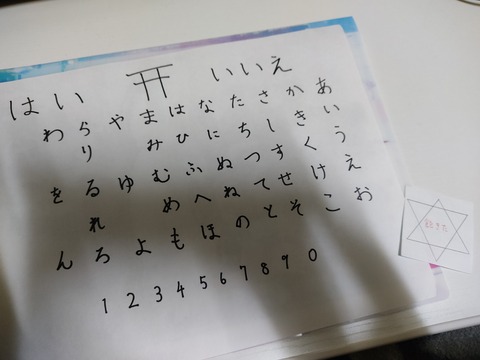 はい いいえ
あいうえお
かきくけこ
さしすせそ
たちつてと
なにぬねの
はひふへほ
まみむめも
やゆよ
らりるれろ
わをん
1 2 3 4 5 6 7 8 9 0
飽きた